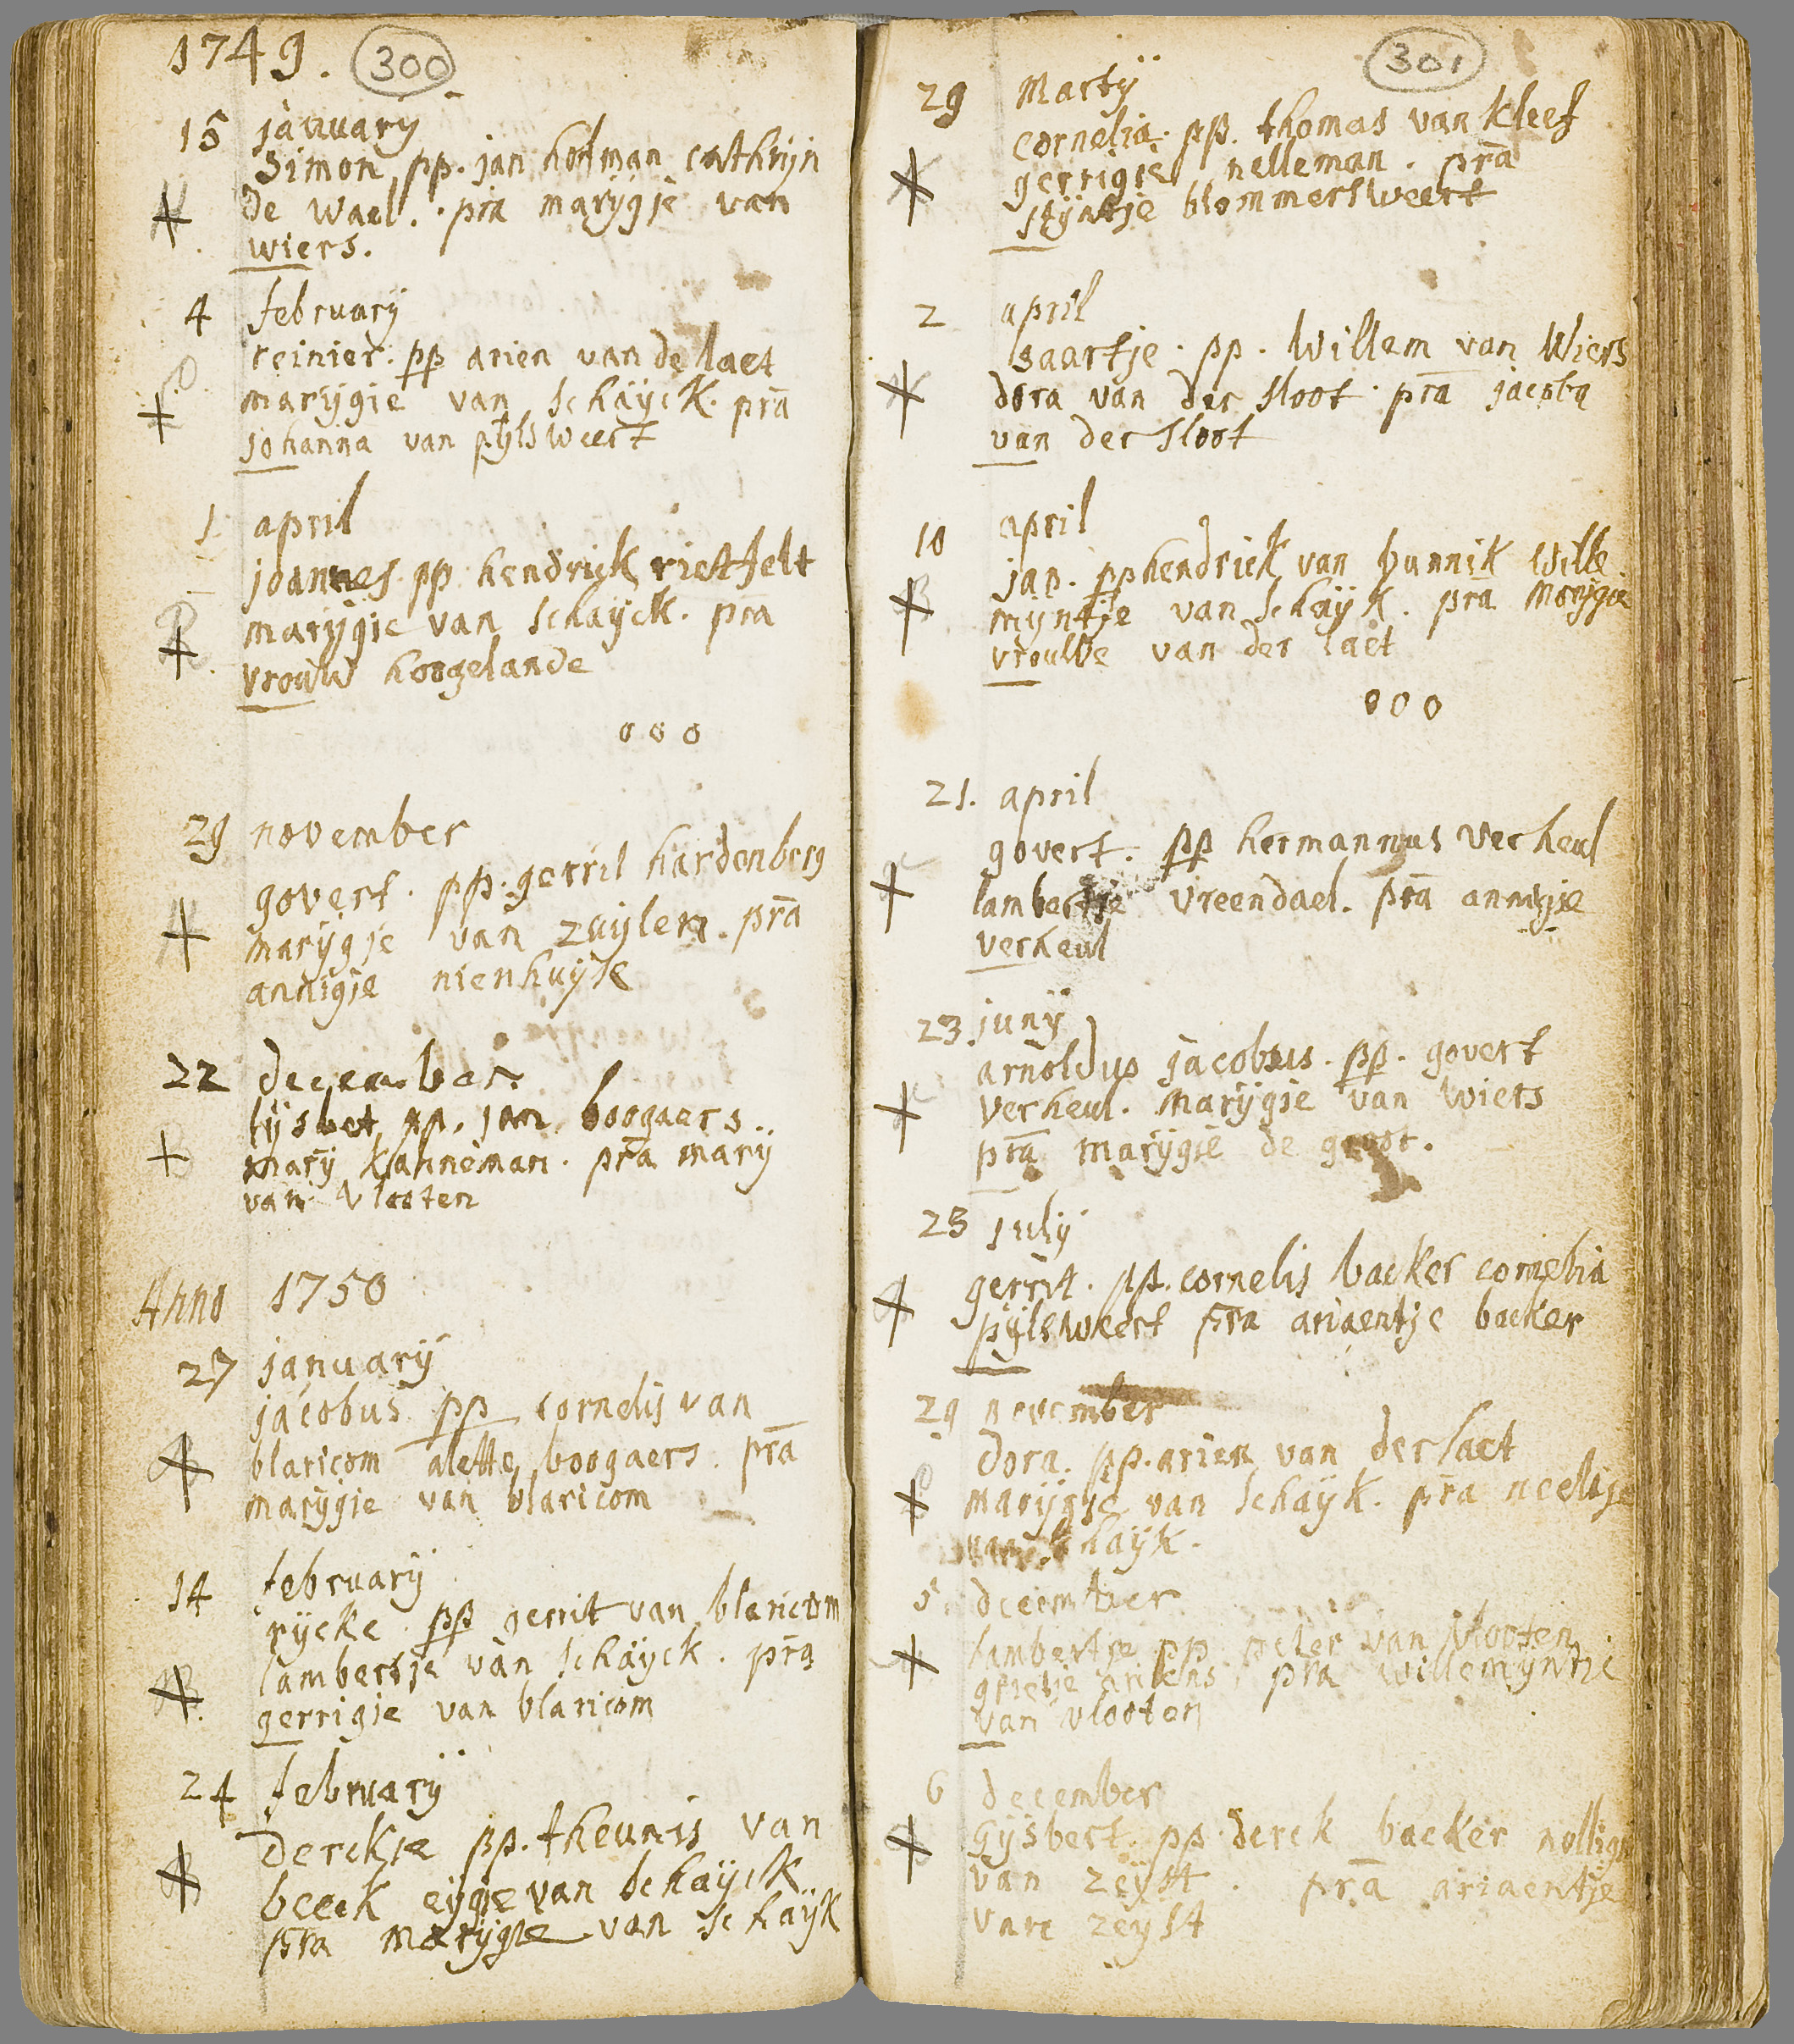 1749. 300
15 january
Simon pp. jan hofman cathrijn
de wael. pra marijgje van
wiers.
4 februarij
reinier. pp arien van de laet
marijgie van schaijck. pra
johanna van pijlsweert
1 april
joannes. pp. hendrick rietfelt
marijgie van schaijck. pra
vrouw hoogelande
o o o
29 november
govert. pp. gerrit hardenberg
marijgje van zuijlen. pra
annigje nienhuijse
22 december
lijsbet pp. jan boogaers
marij kanneman. pra marij
van vlooten
Anno 1750
27 januarij
jacobus pp cornelis van
blaricom alette boogaers. pra
marijgie van blaricom
14 februarij
rijcke. pp gerrit van blaricom
lambertje van schaijck. pra
gerrigje van blaricom
24 februarij
derckje pp. theunis van
beeck eijgje van schaijck
pra marijgje van schaijk
301
29 Martij
cornelia. pp. thomas van kleef
gerrigje nelleman. pra
stijntje blommersweert
2 april
saartje. pp. willem van Wiers
dora van der sloot. pra jacoba
van der sloot
10 april
jan. pp hendrick van bunnik Wille
mijntje van schaijk. pra Marijgie
vrouwe van der laet
o o o
21. april
govert. pp hermannus verheul
lambertje vreendael. pra annigje
verheul
23 junij
arnoldus jacobus. pp. govert
verheul. Marijgie van wiers
pra marijgie de groot.
25 julij
gerrit. pp. cornelis backer cornelia
pijlsweert pra ariaentje backer
29 november
dora. pp. arien van der laet
marijgje van schaijk. pra neeltje
van schaijk.
5 december
lambertje pp peter van vlooten
grietje ariens, pra willemijntje
van vlooten
6 december
Gijsbert. pp. derck backer
van zeijst. pra ariaentje
van zeijst